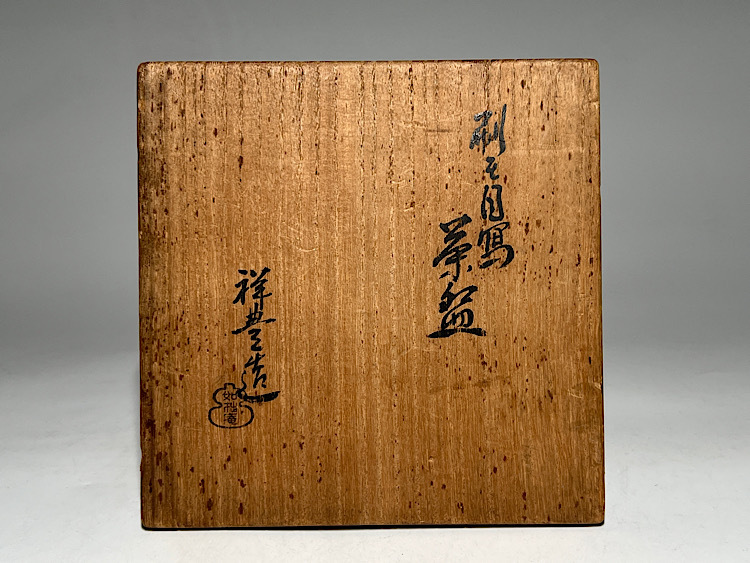 刷毛目写
茶盌
祥豊造